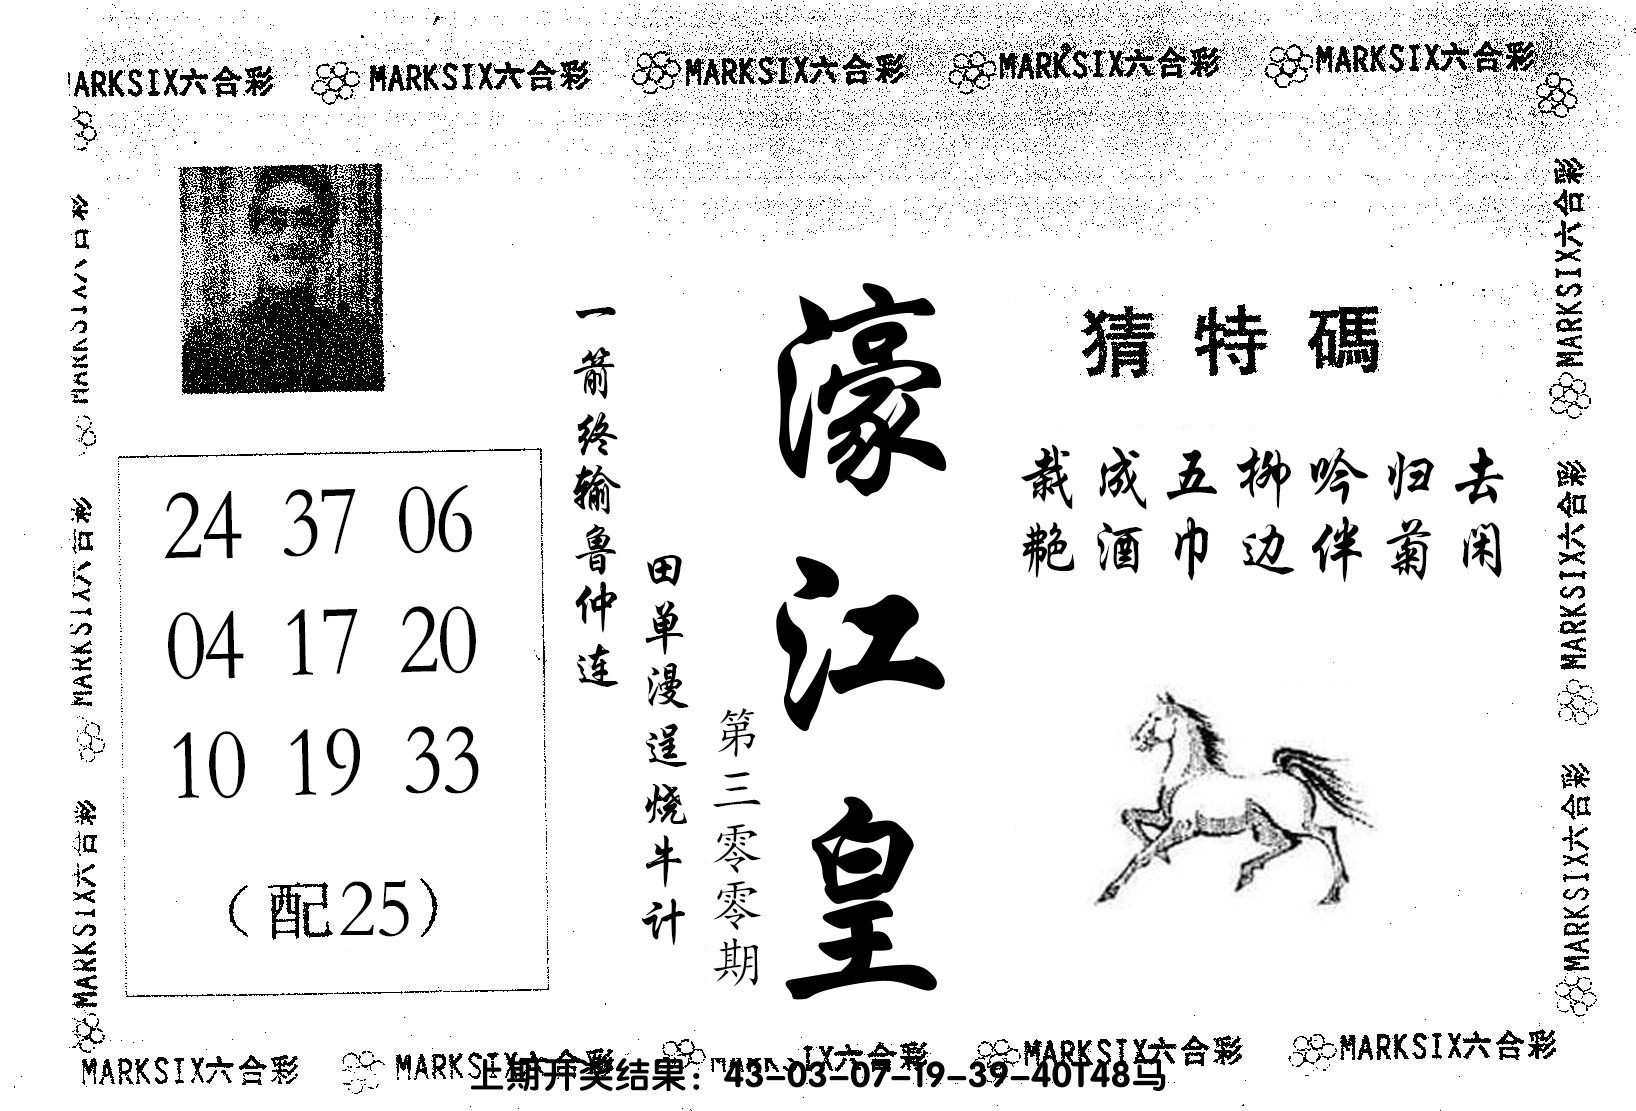 MARKSIX六合彩 MARKSIX六合彩 MARKSIX六合彩 MARKSIX六合彩 MARKSIX六合彩
猜特碼
栽成五柳吟归去
艳酒巾边伴菊闲
濠江皇
第三零零期
一箭终输鲁仲连
田单漫逞烧牛计
24 37 06
04 17 20
10 19 33
（配25）
MARKSIX六合彩
MARKSIX六合彩
MARKSIX六合彩
MARKSIX六合彩
MARKSIX六合彩
MARKSIX六合彩
MARKSIX六合彩 MARKSIX六合彩 MARKSIX六合彩 MARKSIX六合彩
上期开奖结果：43-03-07-19-39-40T48马